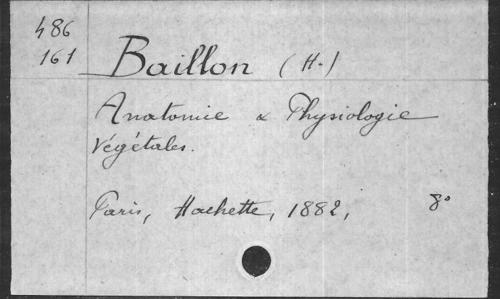 486
161
Baillon (H.)
Anatomie & Physiologie
Végétales.
Paris, Hachette, 1882, 8°